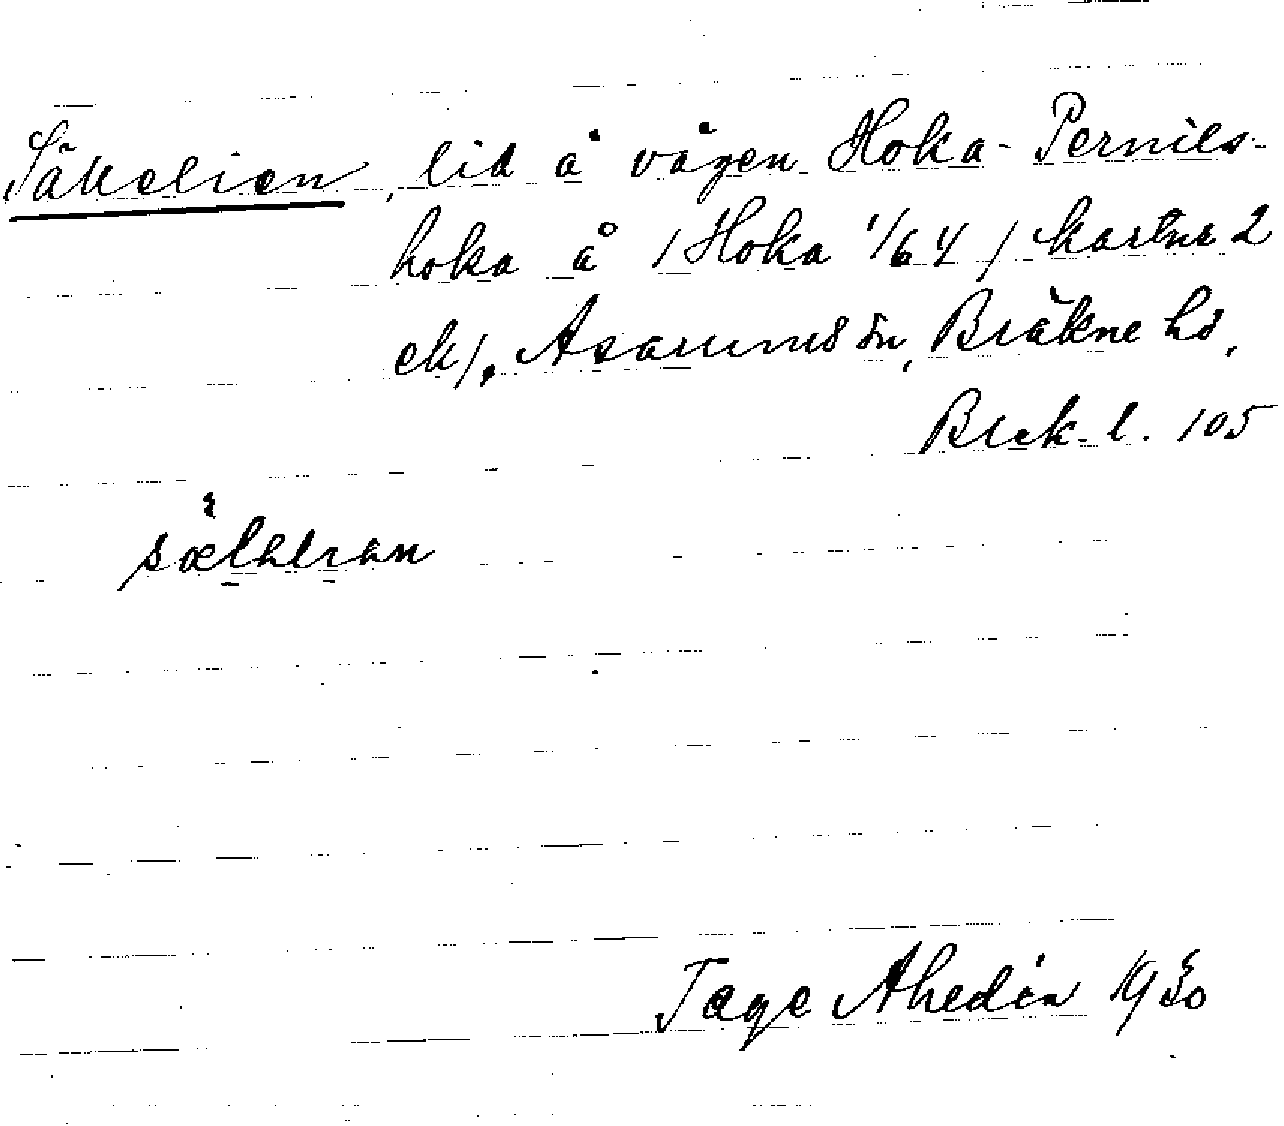 Säkelien, lid å vägen Hoka-Pernils-
hoka å /Hoka 1/64/ kartnr 2
ek/. Asarums sn, Bräkne hd,
Blek. l. 105
Tage Ahedin 1930